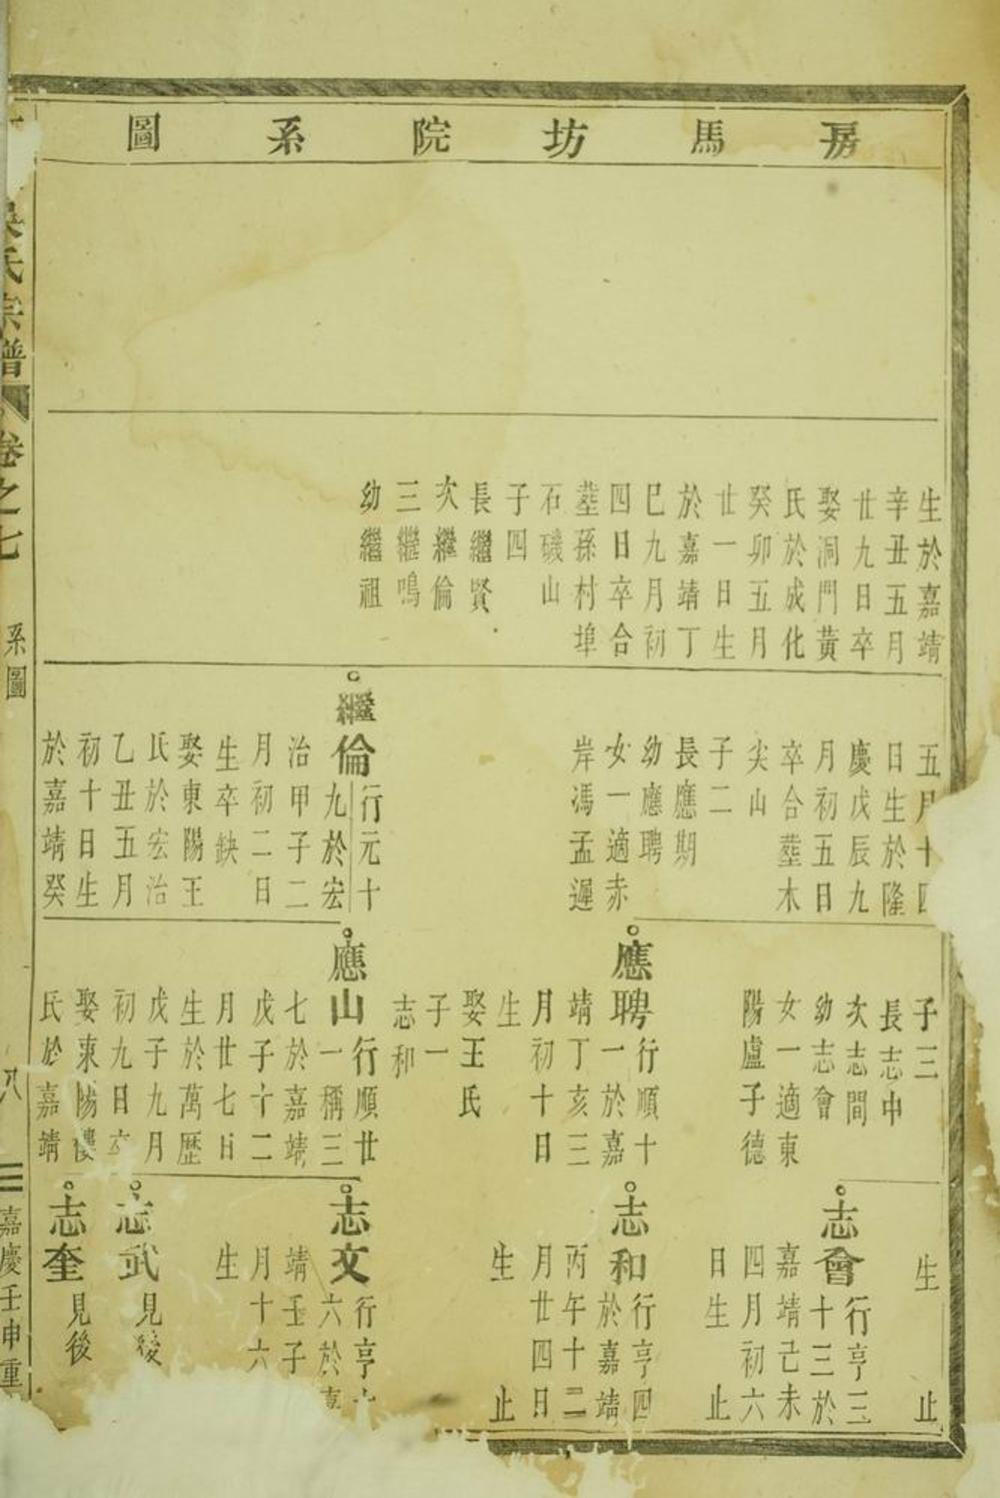 房馬坊院系圖
生於嘉靖
辛丑五月
廿九日卒
娶洞門黃
氏於成化
癸卯五月
廿一日生
於嘉靖丁
巳九月初
四日卒合
塟孫村埠
石磯山
子四
長繼賢
次繼倫
三繼鳴
幼繼祖
五月十四
日生於隆
慶戊辰九
月初五日
卒合塟木
尖山
子二
長應期
幼應聘
女一適赤
岸馮孟遲
繼倫
行元十
九於宏
治甲子二
月初二日
生卒缺
娶東陽王
氏於宏治
乙丑五月
初十日生
於嘉靖癸
子三
長志中
次志間
幼志會
女一適東
陽盧子德
應聘
行順十
一於嘉
靖丁亥三
月初十日
生
娶王氏
子一
志和
應山
行順廿
一稱三
七於嘉靖
戊子十二
月廿七日
生於萬歷
戊子九月
初九日卒
娶東陽樓
氏於嘉靖
生 止
志會
行亨三
十三於
嘉靖己未
四月初六
日生 止
志和
行亨四
於嘉靖
丙午十二
月廿四日
生 止
志文
行亨
六於
靖壬子
月十六
生
志武
見後
志奎
見後
吳氏宗譜
卷之七
系圖
八
嘉慶壬申重